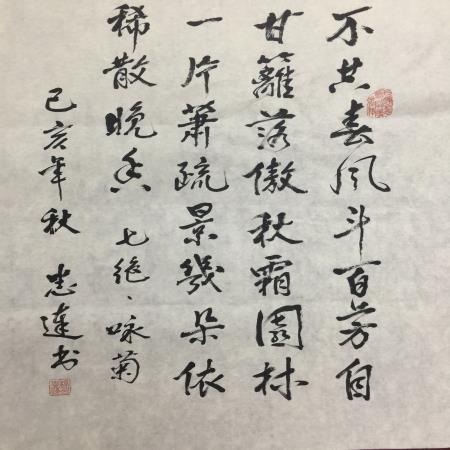 不共春风斗百芳自
甘籬落傲秋霜園林
一片蕭疏景幾朵依
稀散晚香 七绝、咏菊
己亥年秋 志达书